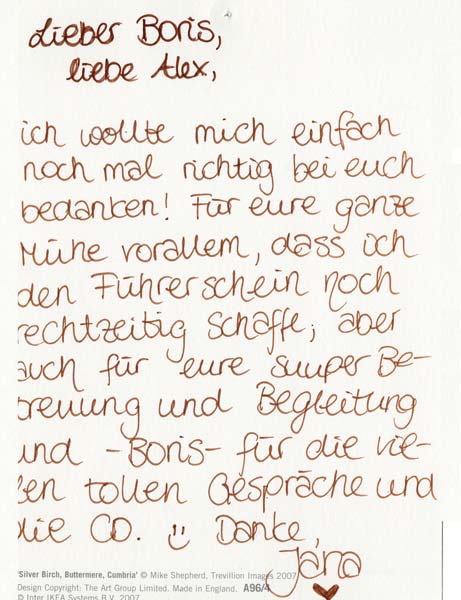 Lieber Boris,
liebe Alex,
ich wollte mich einfach
noch mal richtig bei euch
bedanken! Für eure ganze
Mühe vorallem, dass ich
den Führerschein noch
rechtzeitig schaffe, aber
auch für eure suuper Be-
treuung und Begleitung
und -Boris- für die vie-
len tollen Gespräche und
die CD. Danke,
Jana
'Silver Birch, Buttermere, Cumbria' © Mike Shepherd, Trevillion Images 2007
Design Copyright: The Art Group Limited. Made in England. A96/4
© Inter IKEA Systems B.V. 2007